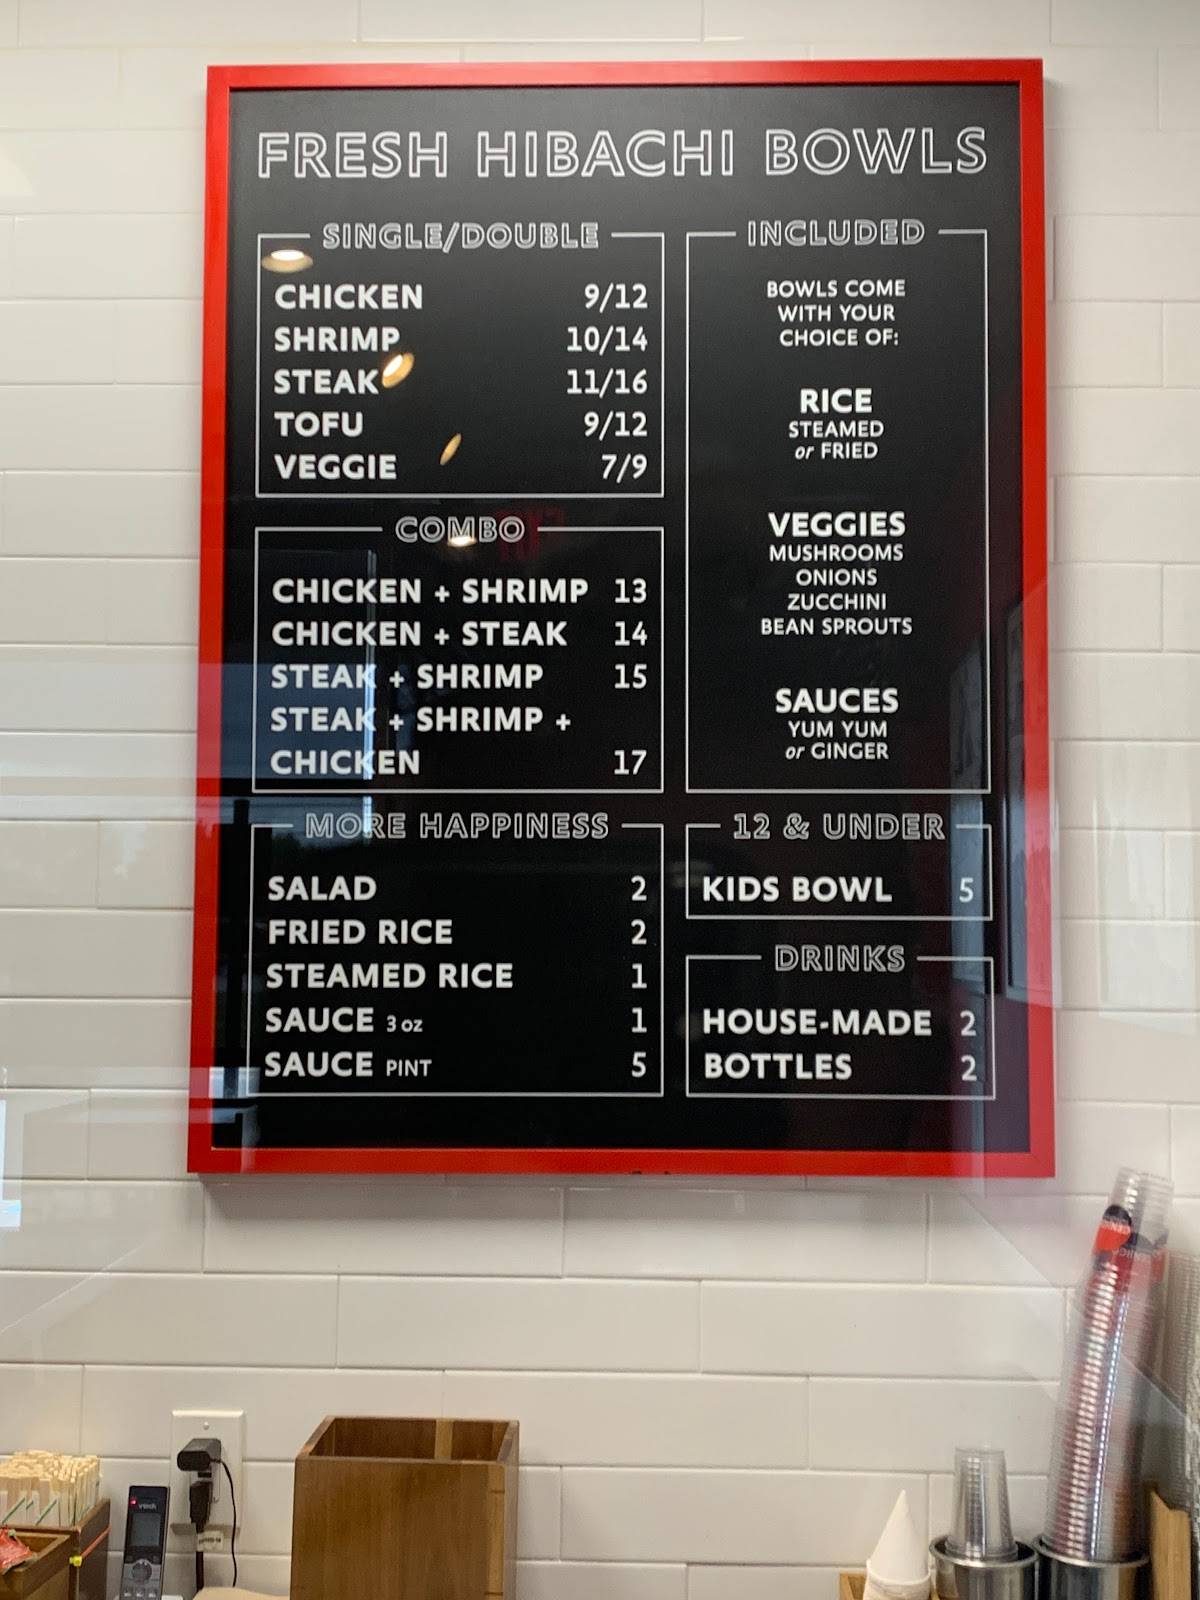 FRESH HIBACHI BOWLS
SINGLE/DOUBLE
CHICKEN 9/12
SHRIMP 10/14
STEAK 11/16
TOFU 9/12
VEGGIE 7/9
COMBO
CHICKEN + SHRIMP 13
CHICKEN + STEAK 14
STEAK + SHRIMP 15
STEAK + SHRIMP +
CHICKEN 17
MORE HAPPINESS
SALAD 2
FRIED RICE 2
STEAMED RICE 1
SAUCE 3 oz 1
SAUCE PINT 5
INCLUDED
BOWLS COME
WITH YOUR
CHOICE OF:
RICE
STEAMED
or FRIED
VEGGIES
MUSHROOMS
ONIONS
ZUCCHINI
BEAN SPROUTS
SAUCES
YUM YUM
or GINGER
12 & UNDER
KIDS BOWL 5
DRINKS
HOUSE-MADE 2
BOTTLES 2
vtech